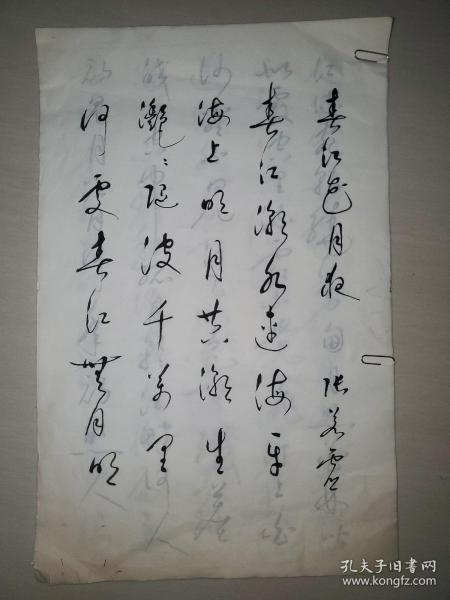 春江花月夜 张若虚
春江潮水连海平
海上明月共潮生
滟滟随波千万里
何处春江无月明
孔夫子旧书网
www.kongfz.com